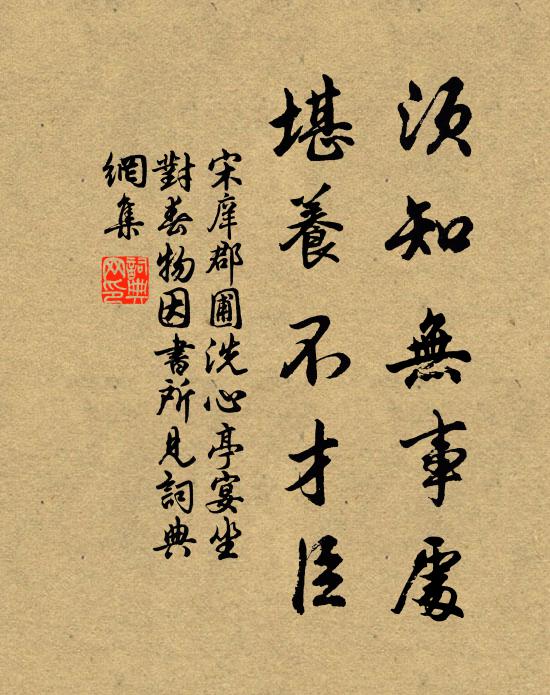 须知無事處
堪養不才臣
宋庠郡圃洗心亭宴坐
對春物因書所見詞典
網集
詞典
网印